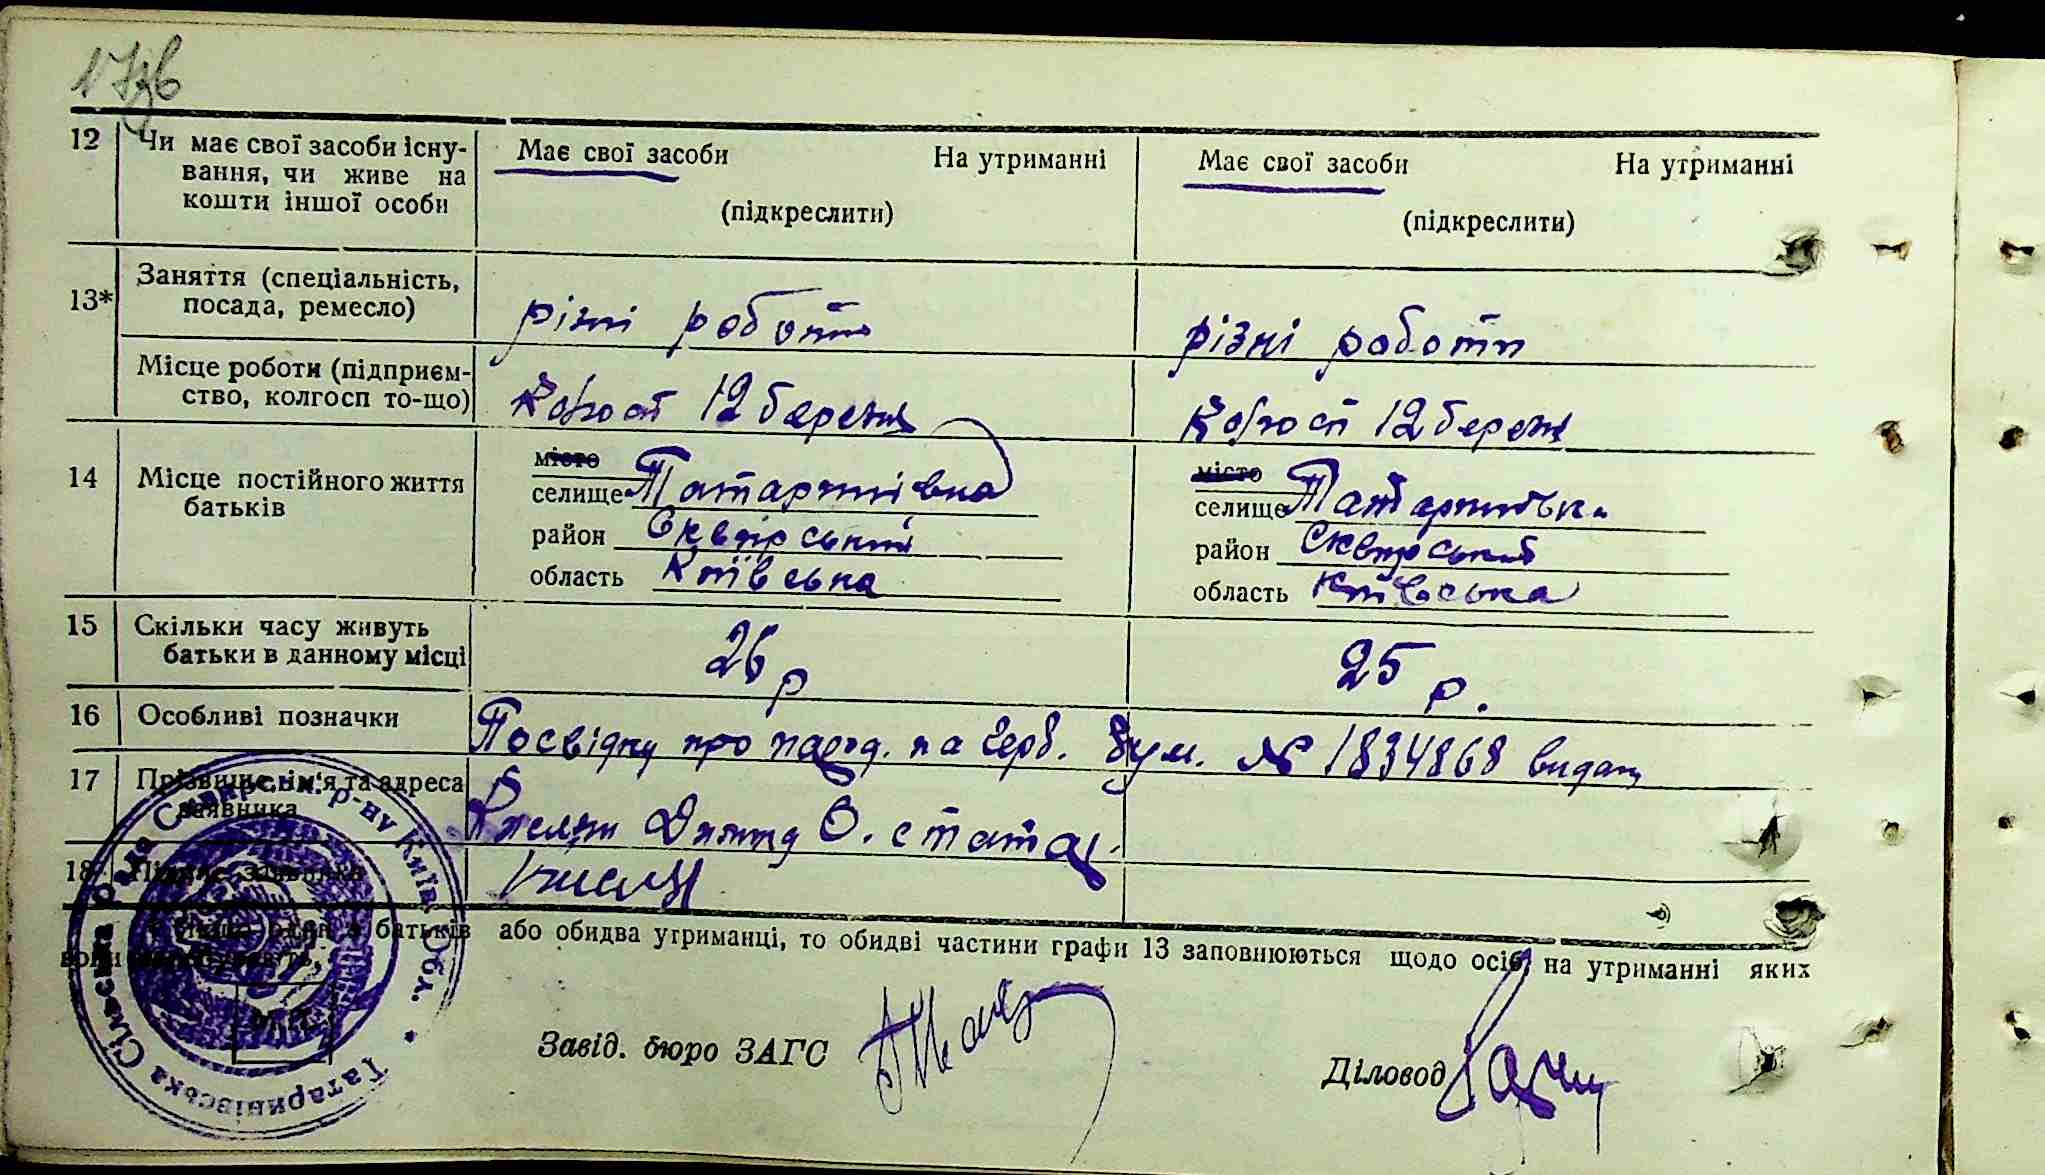 12 Чи має свої засоби існу-
вання, чи живе на
кошти іншої особи
Має свої засоби На утриманні
(підкреслити)
Має свої засоби На утриманні
(підкреслити)
13* Заняття (спеціальність,
посада, ремесло)
різні роботи
різні роботи
Місце роботи (підприєм-
ство, колгосп то-що)
12 березня
12 березня
14 Місце постійного життя
батьків
місто
селище Татаринівка
район Сквирський
область Київська
місто
селище Татаринівка
район Сквирський
область Київська
15 Скільки часу живуть
батьки в данному місці
26 р
25 р.
16 Особливі позначки
Посвідку про на герб. бум. № 1834868 видану
17 Прізвище, ім'я та адреса
заявника
18 Підпис заявника
* Якщо один з батьків або обидва утриманці, то обидві частини графи 13 заповнюються щодо осіб, на утриманні яких
вони
Завід. бюро ЗАГС
Діловод
Татаринівська Сільська Рада Сквирськ. р-ну Київ. Обл.